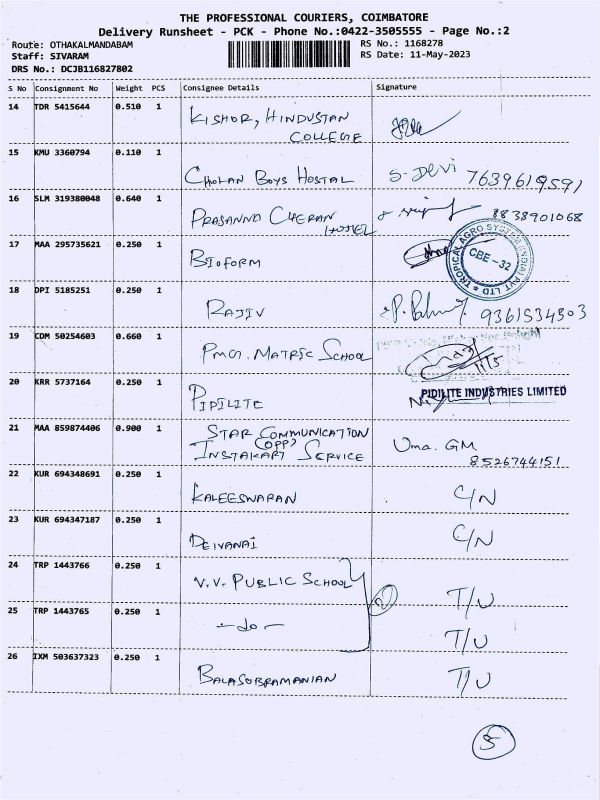 THE PROFESSIONAL COURIERS, COIMBATORE
Delivery Runsheet - PCK - Phone No.:0422-3505555 - Page No.:2
Route: OTHAKALMANDABAM RS No.: 1168278
Staff: SIVARAM RS Date: 11-May-2023
DRS No.: DCJB116827802
S No Consignment No Weight PCS Consignee Details Signature
14 TDR 5415644 0.510 1 KISHOR, HINDUSTAN
COLLEGE
15 KMU 3360794 0.110 1 CHOLAN BOYS HOSTAL S. Devi 7639619591
16 SLM 319380048 0.640 1 PRASANNO CHERAN 8838901068
HOSTEL
17 MAA 295735621 0.250 1 BIOFORM
TROPICAL AGRO SYSTEM (INDIA) PVT LTD
CBE-32
18 DPI 5185251 0.250 1 RAJIV 9361534303
19 CDM 50254603 0.660 1 PMG. MATRIC SCHOOL
11/5
20 KRR 5737164 0.250 1 PIPILITE PIDILITE INDUSTRIES LIMITED
21 MAA 859874406 0.900 1 STAR COMMUNICATION
(OPP) Uma. GM
INSTAKART SERVICE 8526744151
22 KUR 694348691 0.250 1 KALEESWARAN C/N
23 KUR 694347187 0.250 1 DEIVANAI C/N
24 TRP 1443766 0.250 1 V.V. PUBLIC SCHOOL 2 T/U
25 TRP 1443765 0.250 1 -do- T/U
26 IXM 503637323 0.250 1 BALASUBRAMANIAN T/U
5